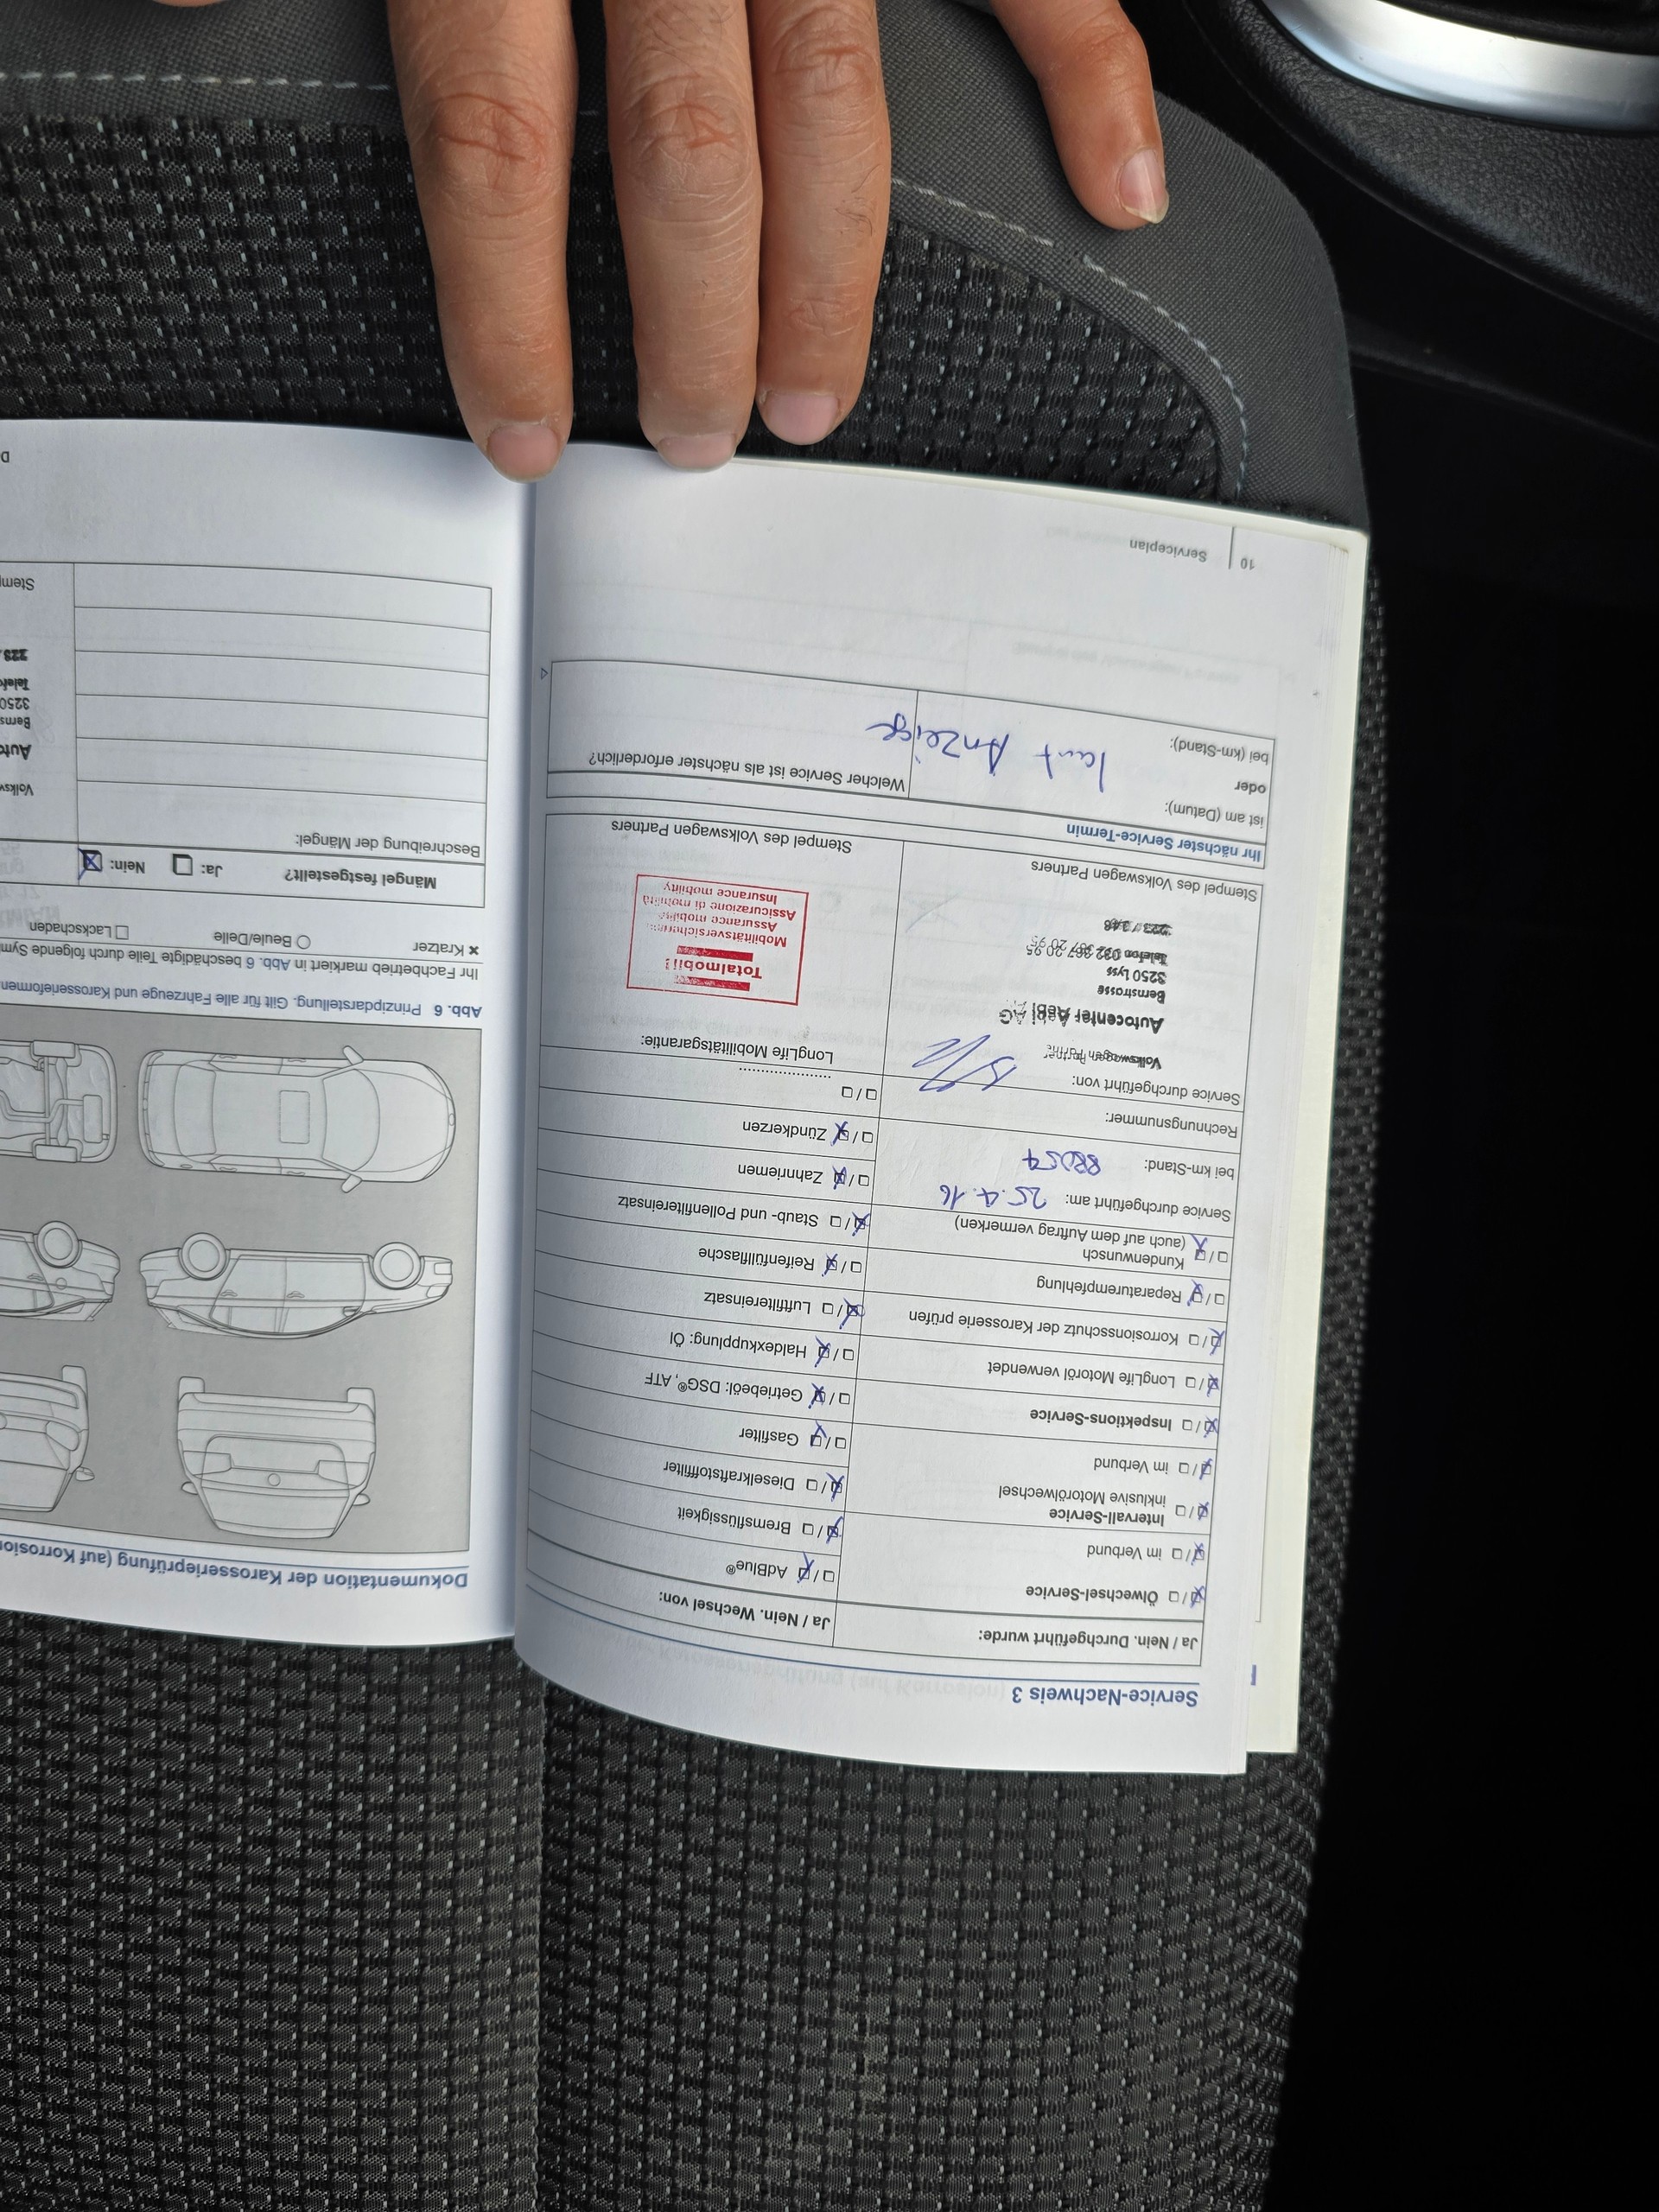 Service-Nachweis 3
Ja / Nein. Durchgeführt wurde:
Ölwechsel-Service
im Verbund
Intervall-Service
inklusive Motorölwechsel
im Verbund
Inspektions-Service
LongLife Motoröl verwendet
Korrosionsschutz der Karosserie prüfen
Reparaturempfehlung
Kundenwunsch
(auch auf dem Auftrag vermerken)
Service durchgeführt am: 25.4.16
bei km-Stand: 88057
Rechnungsnummer:
Service durchgeführt von:
Volkswagen Partner
Autocenter Aebi AG
Bernstrasse
3250 Lyss
Telefon 032 387 20 95
223 / 348
Stempel des Volkswagen Partners
Ja / Nein. Wechsel von:
AdBlue®
Bremsflüssigkeit
Dieselkraftstofffilter
Gasfilter
Getriebeöl: DSG®, ATF
Haldexkupplung: Öl
Luftfiltereinsatz
Reifenfüllflasche
Staub- und Pollenfiltereinsatz
Zahnriemen
Zündkerzen
LongLife Mobilitätsgarantie:
Totalmobil!
Assurance mobilité
Assicurazione di mobilità
Insurance mobility
Stempel des Volkswagen Partners
Ihr nächster Service-Termin
ist am (Datum):
oder
bei (km-Stand):
laut Anzeige
Welcher Service ist als nächster erforderlich?
10 Serviceplan
Dokumentation der Karosserieprüfung (auf Korrosion
Abb. 6 Prinzipdarstellung. Gilt für alle Fahrzeuge und Karosserieformen
Ihr Fachbetrieb markiert in Abb. 6 beschädigte Teile durch folgende Sym
Kratzer Beule/Delle Lackschaden
Mängel festgestellt? Ja: Nein:
Beschreibung der Mängel:
Volksw
Auto
Berns
3250
Telef
223
Stemp